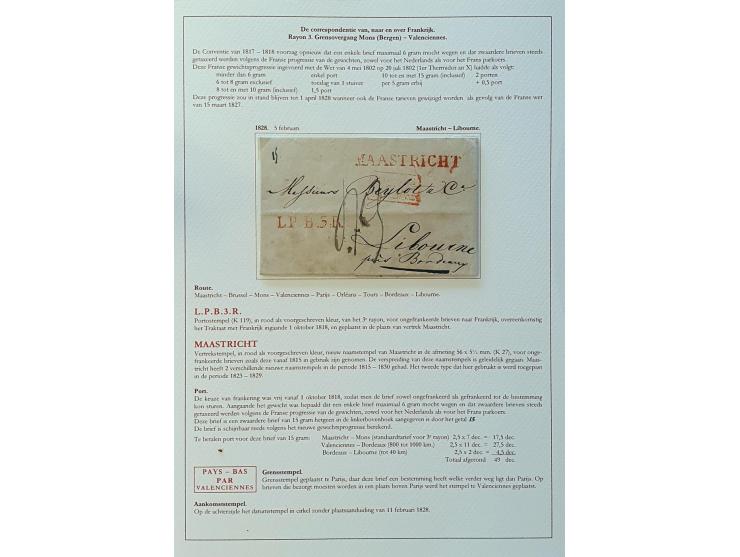 De correspondentie van, naar en over Frankrijk.
Rayon 3. Grensovergang Mons (Bergen) – Valenciennes.
De Conventie van 1817 – 1818 voorzag opnieuw dat een enkele brief maximaal 6 gram mocht wegen en dat zwaardere brieven steeds
getaxeerd werden volgens de Franse progressie van de gewichten, zowel voor het Nederlands als voor het Frans parkoers.
Deze Franse gewichtsprogressie ingevoerd met de Wet van 4 mei 1802 op 20 juli 1802 (1er Thermidor an X) luidde als volgt:
minder dan 6 gram enkel port 10 tot en met 15 gram (inclusief) 2 porten
6 tot 8 gram exclusief toeslag van 1 stuiver per 5 gram erbij + 0,5 port
8 tot en met 10 gram (inclusief) 1,5 port
Deze progressie zou in stand blijven tot 1 april 1828 wanneer ook de Franse tarieven gewijzigd worden als gevolg van de Franse wet
van 15 maart 1827.
1828. 5 februari Maastricht – Libourne.
MAASTRICHT
Messieurs Beylot & Ce
L.P.B.3.R.
Libourne
près Bordeaux
Route.
Maastricht – Brussel – Mons – Valenciennes – Parijs – Orléans – Tours – Bordeaux – Libourne.
L.P.B.3.R.
Portostempel (K 119), in rood als voorgeschreven kleur, van het 3e rayon, voor ongefrankeerde brieven naar Frankrijk, overeenkomstig
het Traktaat met Frankrijk ingaande 1 oktober 1818, en geplaatst in de plaats van vertrek Maastricht.
MAASTRICHT
Vertrekstempel, in rood als voorgeschreven kleur, nieuw naamstempel van Maastricht in de afmeting 56 x 5½ mm. (K 27), voor onge-
frankeerde brieven zoals deze vanaf 1815 in gebruik zijn genomen. De verspreiding van deze naamstempels is geleidelijk gegaan. Maas-
tricht heeft 2 verschillende nieuwe naamstempels in de periode 1815 – 1830 gehad. Het tweede type dat hier gebruikt is werd toegepast
in de periode 1823 – 1829.
Port.
De keuze van frankering was vrij vanaf 1 oktober 1818, zodat men de brief zowel ongefrankeerd als gefrankeerd tot de bestemming
kon sturen. Aangaande het gewicht was bepaald dat een enkele brief maximaal 6 gram mocht wegen en dat zwaardere brieven steeds
getaxeerd werden volgens de Franse progressie van de gewichten, zowel voor het Nederlands als voor het Frans parkoers.
Deze brief is een zwaardere brief van 15 gram hetgeen in de linkerbovenhoek aangegeven is door het getal 15.
De brief is schijnbaar reeds volgens het nieuwe gewichtsprogressie berekend.
Te betalen port voor deze brief van 15 gram: Maastricht – Mons (standaardtarief voor 3e rayon) 2,5 x 7 dec. = 17,5 dec.
Valenciennes – Bordeaux (800 tot 1000 km.) 2,5 x 11 dec. = 27,5 dec.
Bordeaux – Libourne (tot 40 km) 2,5 x 2 dec = 4,5 dec.
Totaal afgerond 49 dec.
PAYS – BAS
PAR
VALENCIENNES
Grensstempel.
Grensstempel geplaatst te Parijs, daar deze brief een bestemming heeft welke verder weg ligt dan Parijs. Op
brieven die bezorgt moesten worden in een plaats boven Parijs werd het stempel te Valenciennes geplaatst.
Aankomststempel.
Op de achterzijde het datumstempel in cirkel zonder plaatsaanduiding van 11 februari 1828.